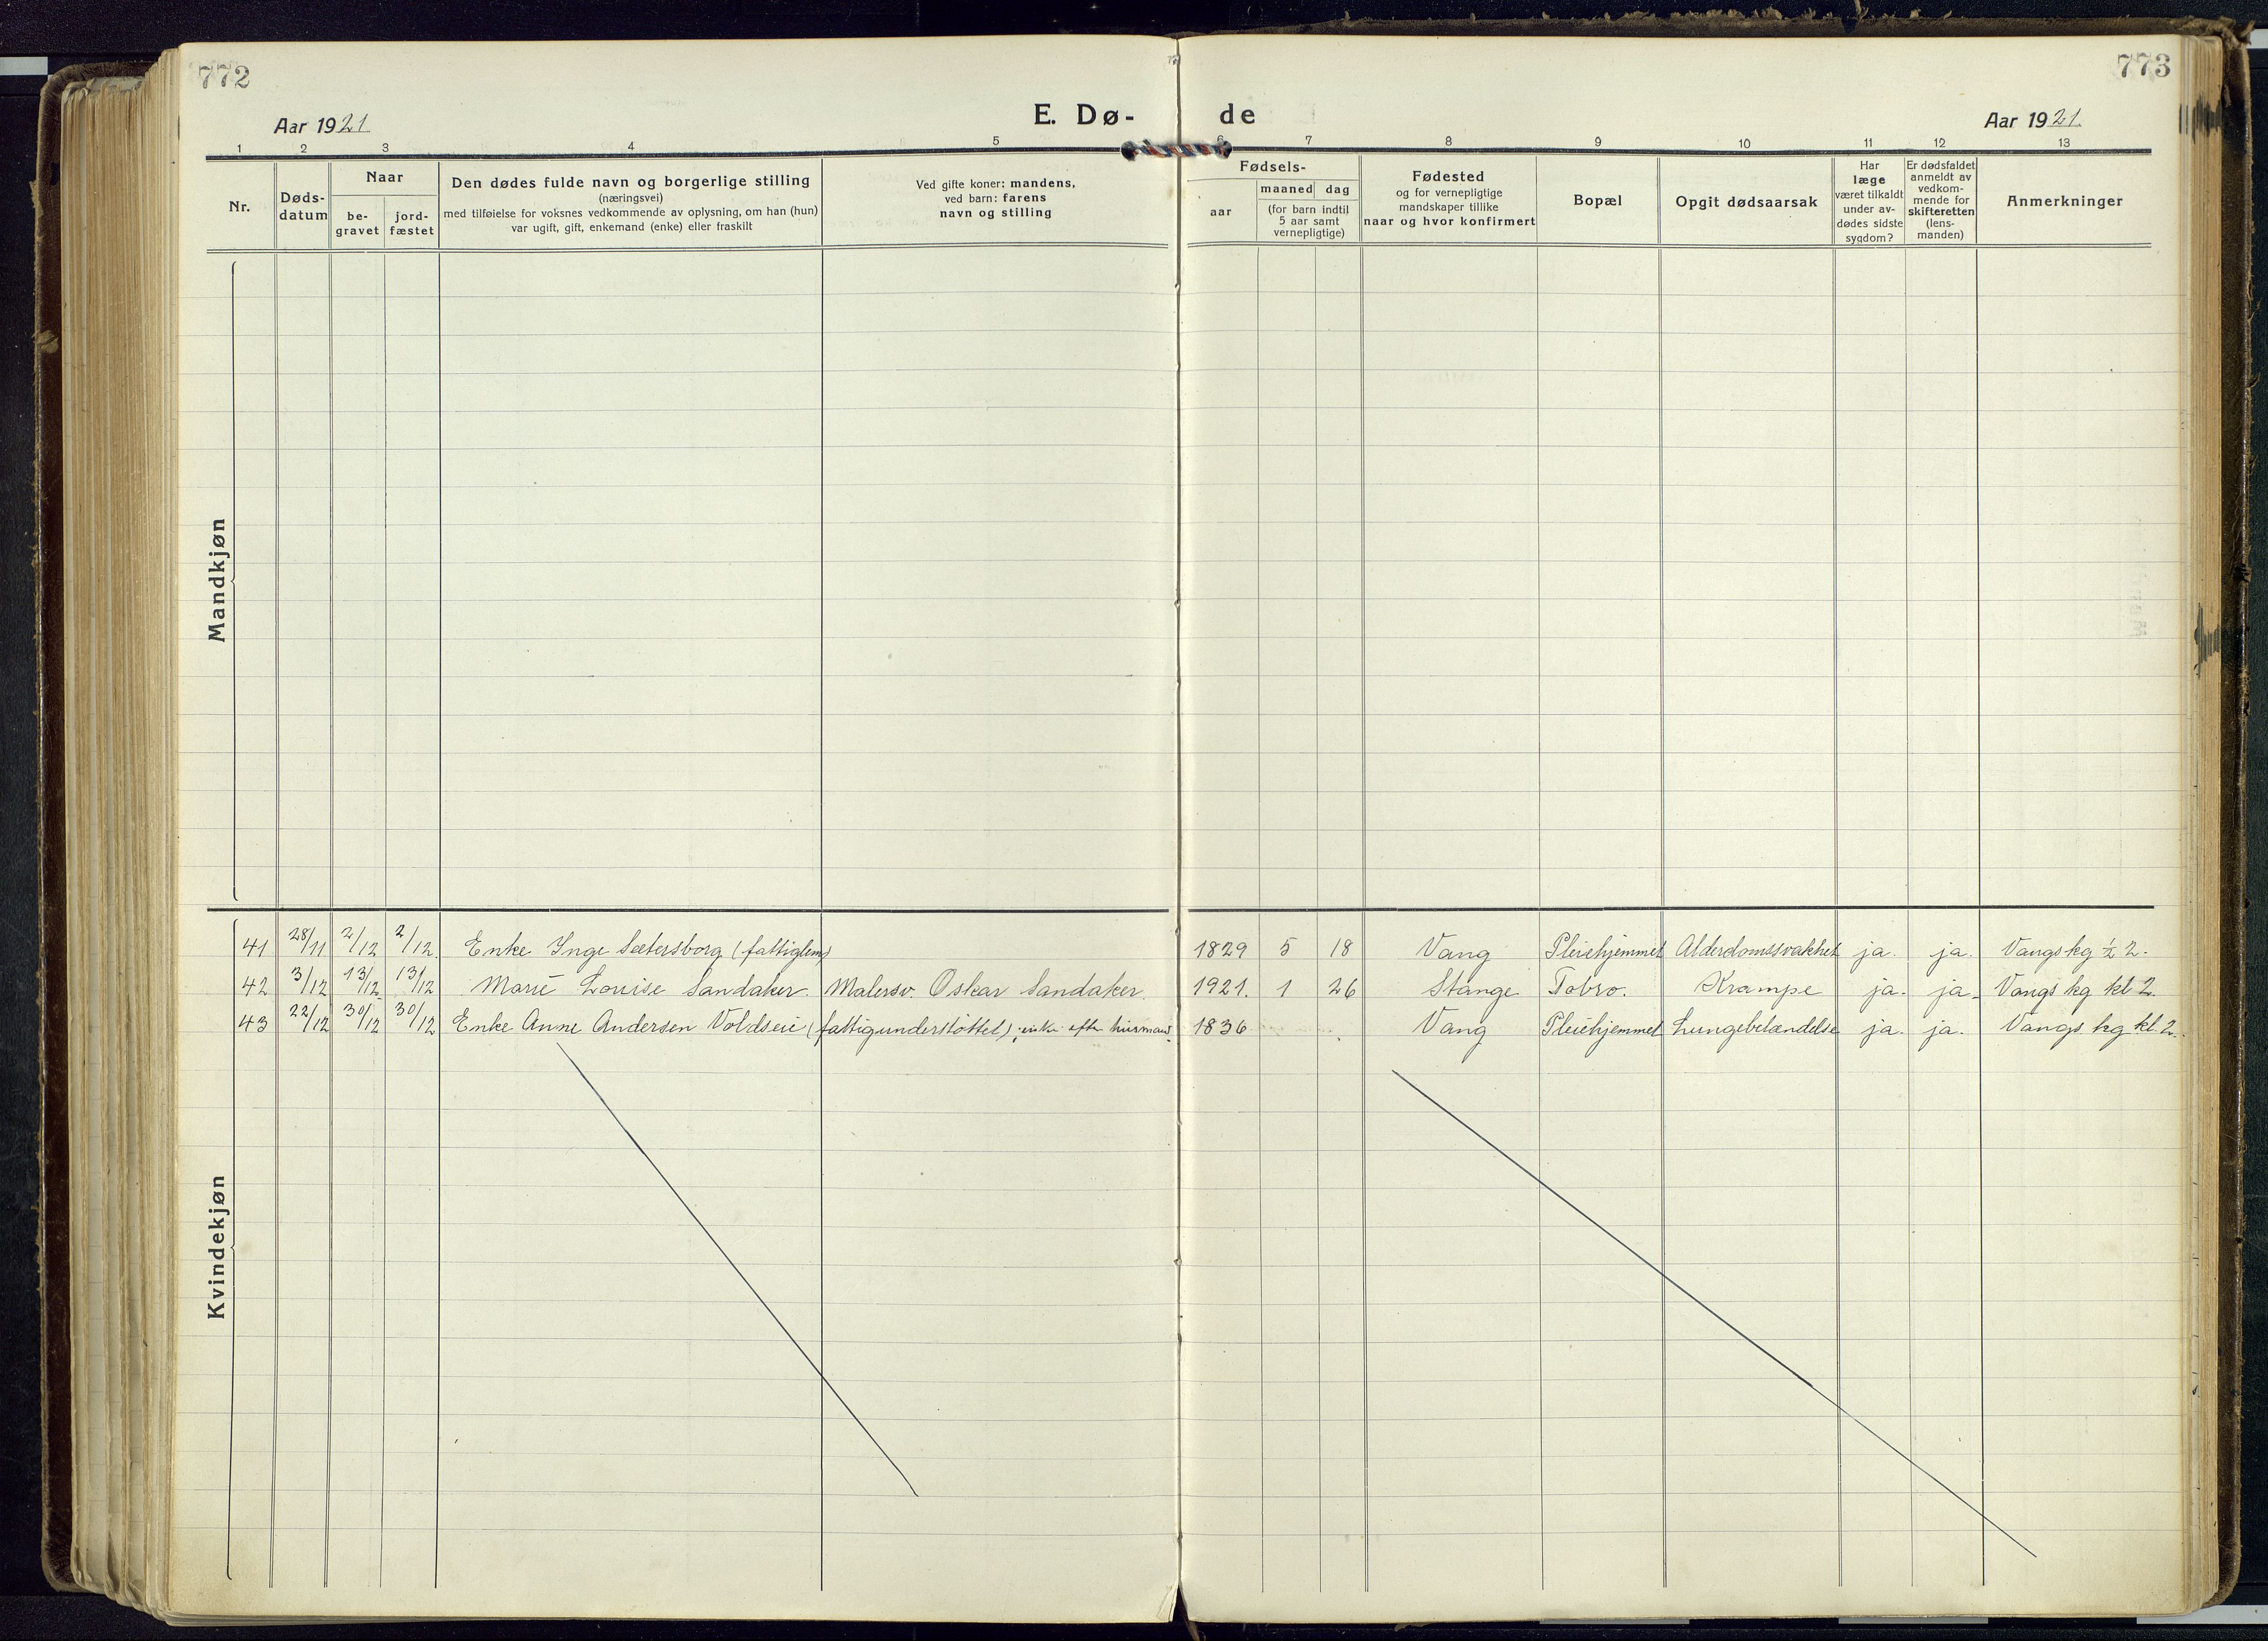 772
773
E. Dø- de
Aar 1921
Aar 1921.
1 2 3 4 5 6 7 8 9 10 11 12 13
Nr.
Døds-
datum
Naar
be-
gravet
jord-
fæstet
Den dødes fulde navn og borgerlige stilling
(næringsvei)
med tilføielse for voksnes vedkommende av oplysning, om han (hun)
var ugift, gift, enkemand (enke) eller fraskilt
Ved gifte koner: mandens,
ved barn: farens
navn og stilling
Fødsels-
aar
maaned dag
(for barn indtil
5 aar samt
vernepligtige)
Fødested
og for vernepligtige
mandskaper tillike
naar og hvor konfirmert
Bopæl
Opgit dødsaarsak
Har
læge
været tilkaldt
under av-
dødes sidste
sygdom?
Er dødsfaldet
anmeldt av
vedkom-
mende for
skifteretten
(lens-
manden)
Anmerkninger
Mandkjøn
Kvindekjøn
41 28/11 2/12 2/12. Enke Inge Sætersborg (fattiglem) 1829 5 18 Vang Pleiehjemmet Alderdomssvakhet ja. ja. Vangs kg ½ 2.
42 3/12 13/12 13/12 Marie Louise Sandaker. Malersv. Oskar Sandaker. 1921. 1 26 Stange Tobro. Krampe ja. ja. Vangs kg kl 2.
43 22/12 30/12 30/12 Enke Anne Andersen Voldseie (fattigunderstøttet), enke efter husmand. 1836 Vang Pleiehjemmet Lungebetændelse ja. ja. Vangs kg kl. 2.